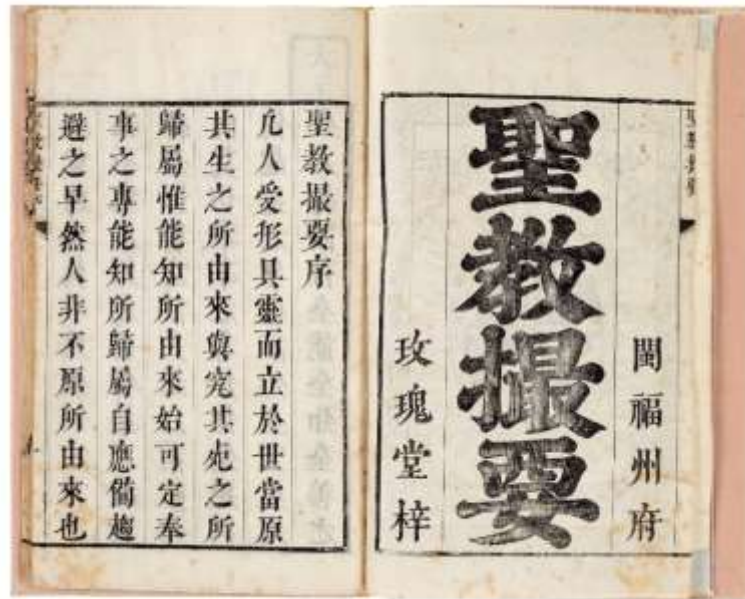 閩福州府
聖教撮要
玫瑰堂梓
聖教撮要序
凢人受形具靈而立於世當原
其生之所由來與究其死之所
歸屬惟能知所由來始可定奉
事之專能知所歸屬自應備趨
避之早然人非不原所由來也